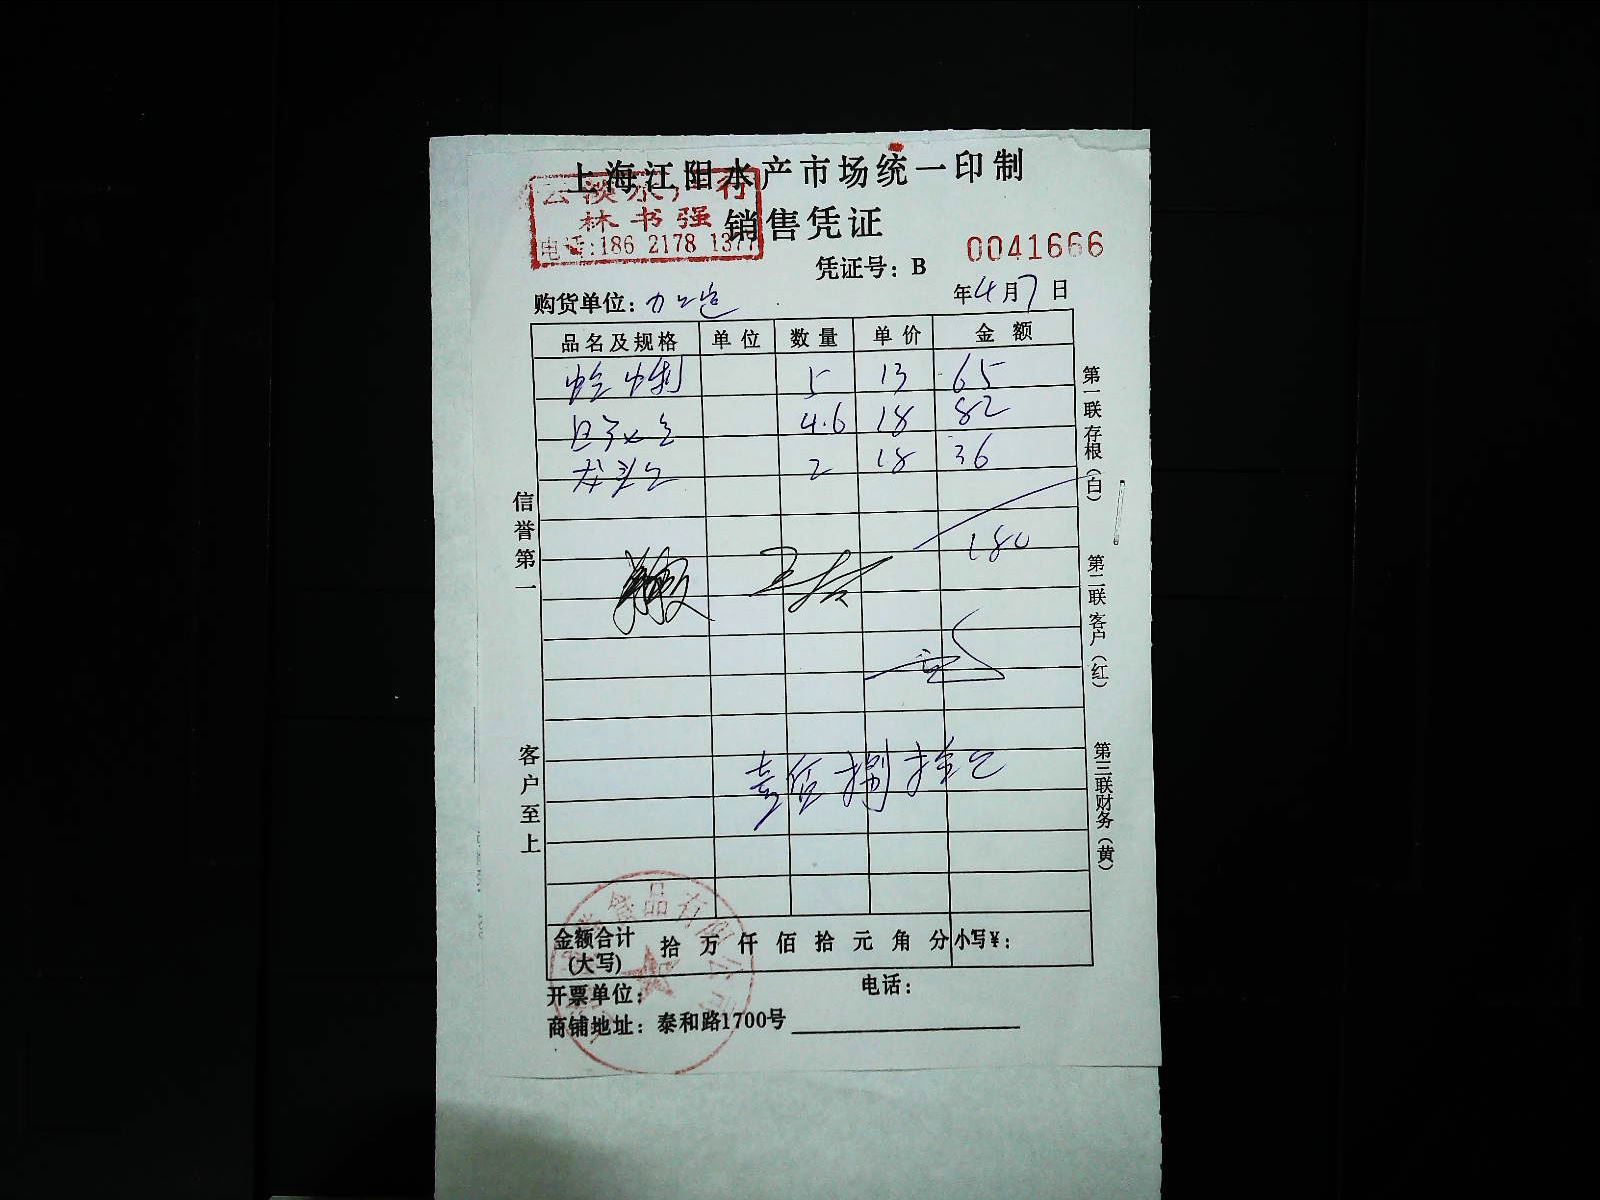 上海江阳水产市场统一印制
林书强
电话:186 2178 1377
销售凭证
0041666
凭证号：B
购货单位：
年4月7日
品名及规格 单位 数量 单价 金额
5 13 65
4.6 18 82
龙头 2 18 36
180
壹佰捌拾
金额合计(大写) 拾 万 仟 佰 拾 元 角 分 小写￥：
开票单位： 电话：
商铺地址：泰和路1700号
信誉第一
客户至上
第一联存根（白）
第二联客户（红）
第三联财务（黄）